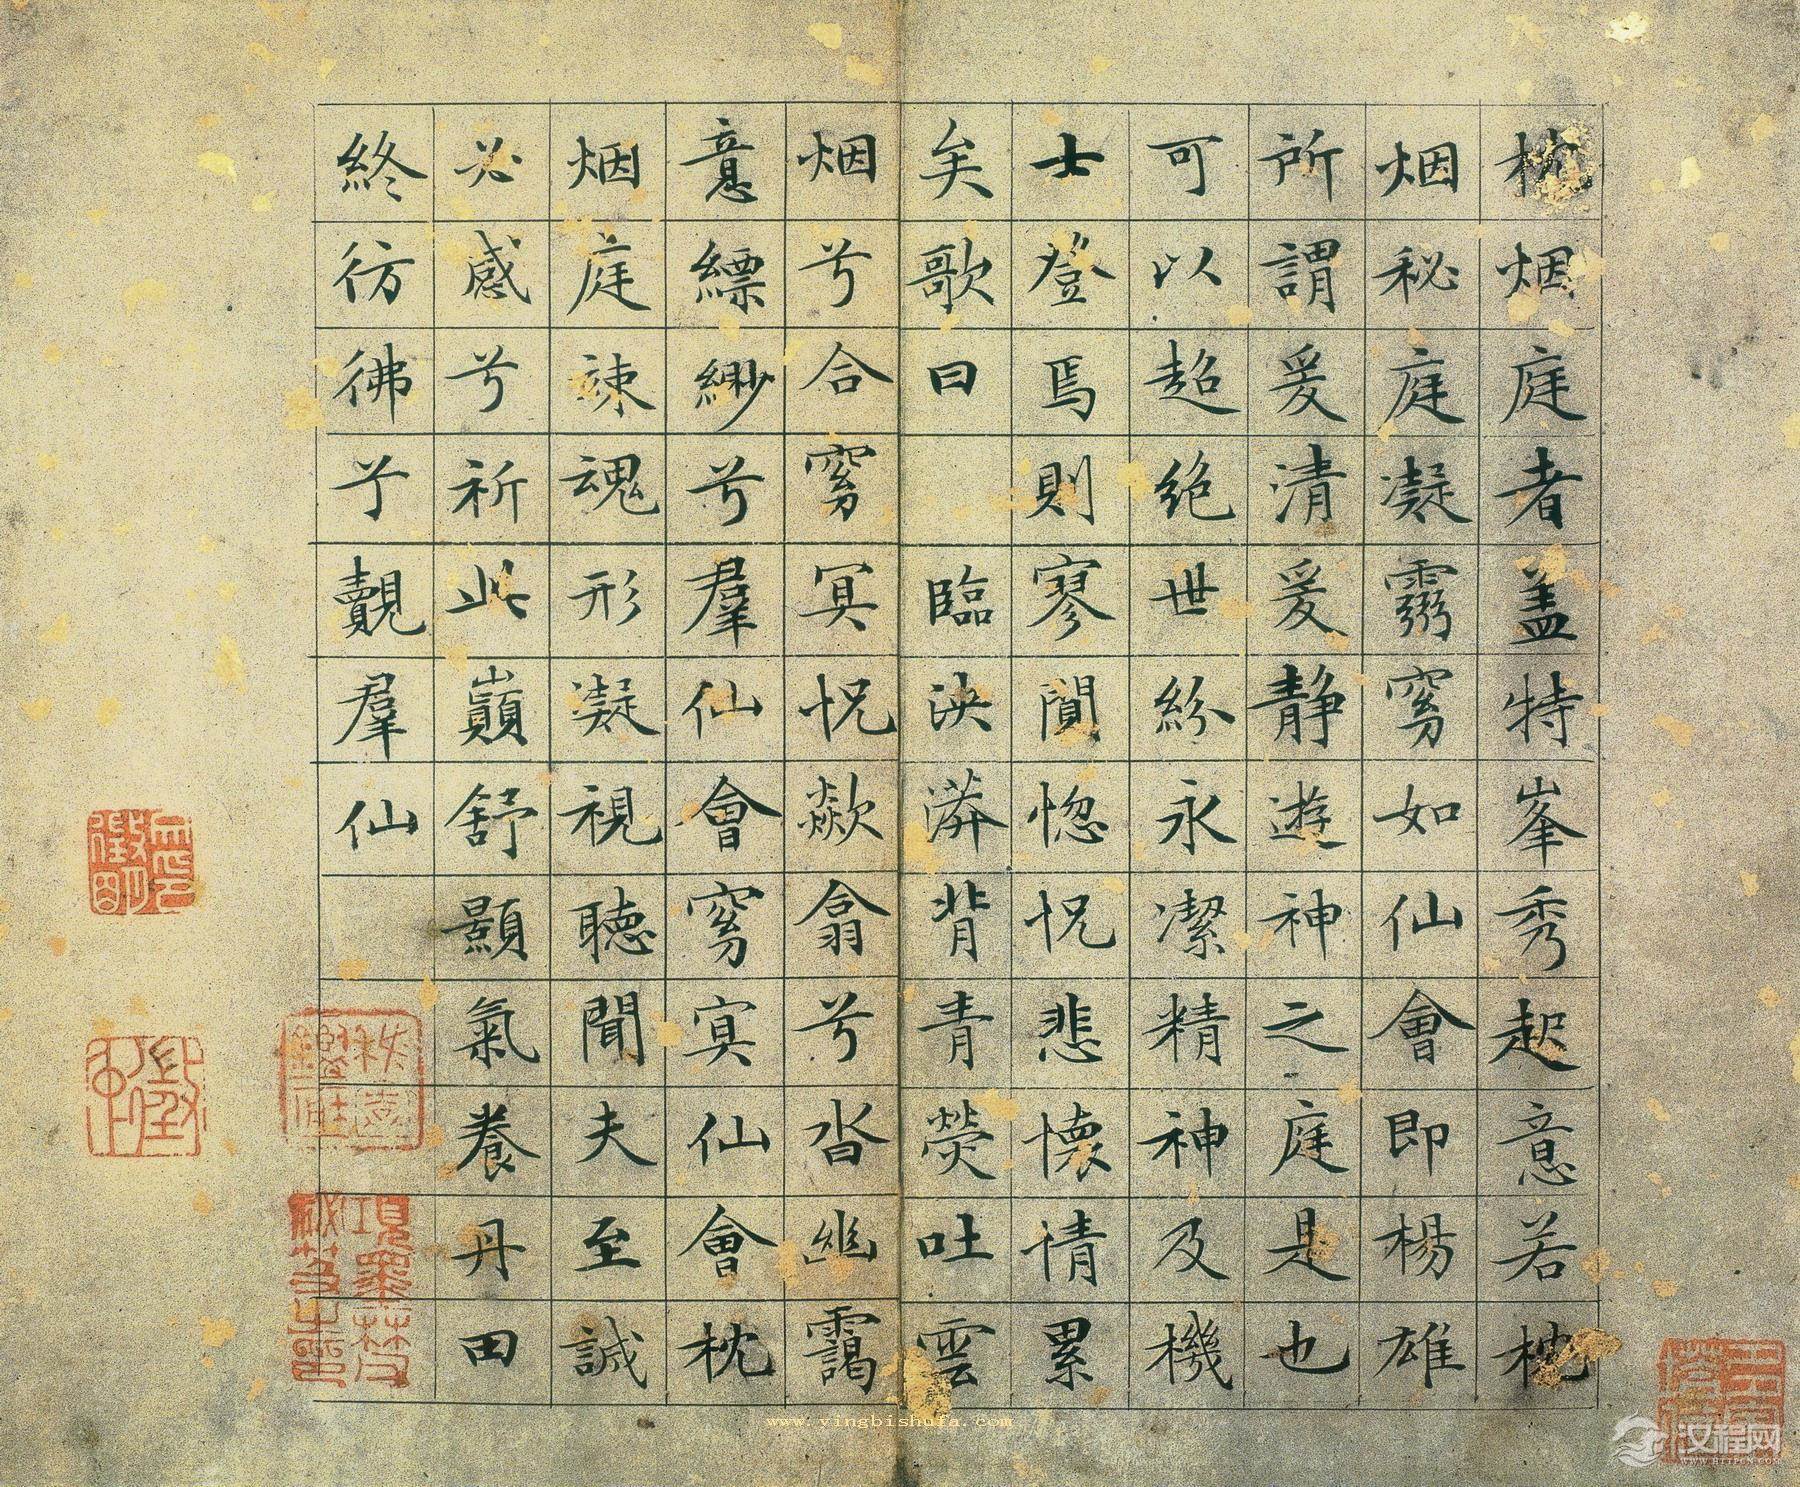 枕烟庭者盖特峯秀起意若枕
烟秘庭凝窈如仙會即楊雄
所謂爰清爰静遊神之庭是也
可以超絶世紛永潔精神及機
士登焉則寥閴惚怳悲懷情累
矣歌曰　臨泱漭背青熒吐雲
烟兮合窈冥怳歘翕兮沓幽靄
意縹緲兮羣仙會窈冥仙會枕
烟庭竦魂形凝視聽聞夫至誠
必感兮祈此巔舒顥氣養丹田
終彷彿兮覿羣仙
項墨林父秘笈之印
www.yingbishufa.com
汉程网
WWW.HTTPCN.COM